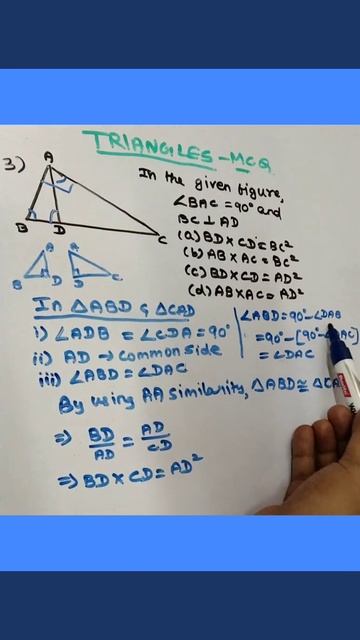 TRIANGLES - MCQ
3)
A
B
D
C
In the given figure,
∠BAC = 90° and
BC ⊥ AD
(a) BD × CD = BC²
(b) AB × AC = BC²
(c) BD × CD = AD²
(d) AB × AC = AD²
A
B
D
A
D
C
In △ABD & △CAD
i) ∠ADB = ∠CDA = 90°
ii) AD → common side
iii) ∠ABD = ∠DAC
∠ABD = 90° - ∠DAB
= 90° - [90° - ∠DAC]
= ∠DAC
By using AA similarity, △ABD ≅
⇒ BD/AD = AD/CD
⇒ BD × CD = AD²